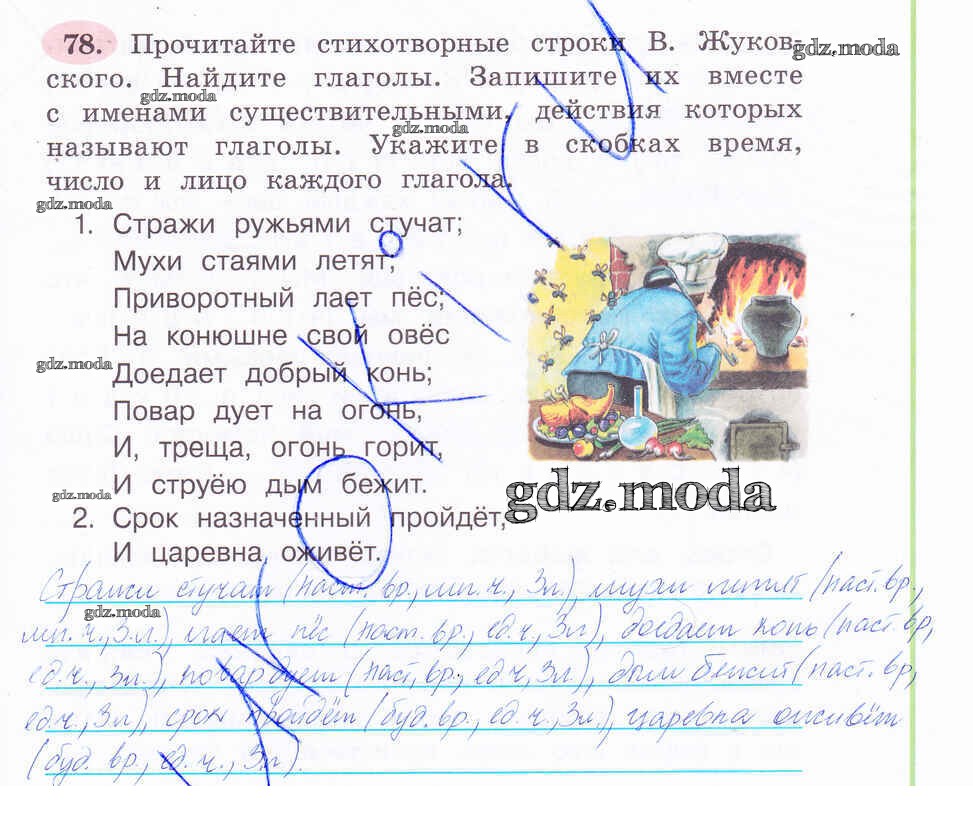 78. Прочитайте стихотворные строки В. Жуков-
gdz.moda
ского. Найдите глаголы. Запишите их вместе
gdz.moda
с именами существительными, действия которых
gdz.moda
называют глаголы. Укажите в скобках время,
число и лицо каждого глагола.
gdz.moda
1. Стражи ружьями стучат;
Мухи стаями летят;
Приворотный лает пёс;
На конюшне свой овёс
gdz.moda
Доедает добрый конь;
Повар дует на огонь,
И, треща, огонь горит,
И струёю дым бежит.
gdz.moda
gdz.moda
2. Срок назначенный пройдёт,
И царевна оживёт.
Стражи стучат (наст. вр., мн. ч., 3 л), мухи летят (наст. вр.,
gdz.moda
мн. ч., 3 л.), лает пёс (наст. вр., ед. ч., 3 л), доедает конь (наст. вр,
ед. ч., 3 л.), повар дует (наст, вр., ед. ч, 3 л), дым бежит (наст. вр,
ед. ч., 3 л), срок пройдёт (буд. вр., ед. ч., 3 л.), царевна оживёт
(буд. вр., ед. ч., 3 л).